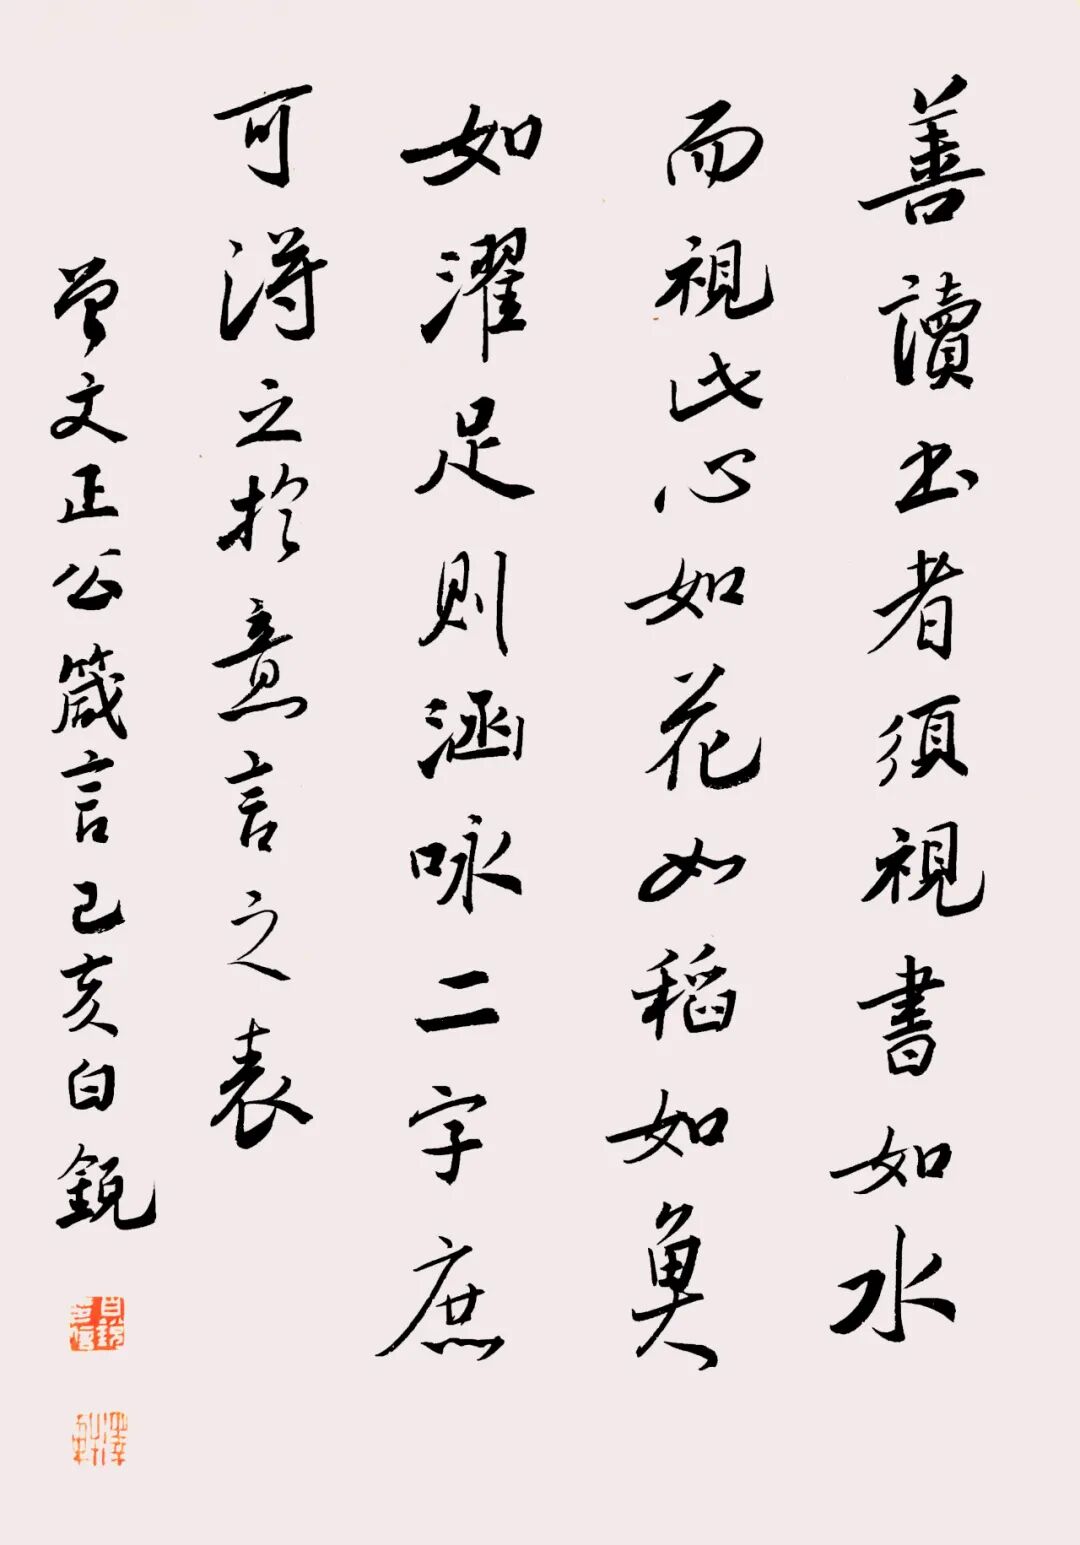 善讀书者須視書如水
而視此心如花如稻如魚
如濯足則涵咏二字庶
可得之於意言之表
曾文正公箴言己亥白鋭